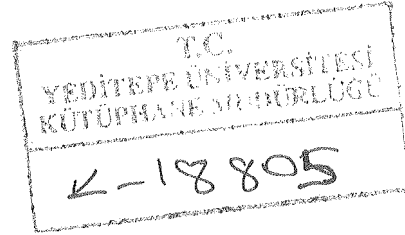 T.C.
YEDİTEPE ÜNİVERSİTESİ
KÜTÜPHANE MÜDÜRLÜĞÜ
K-18805